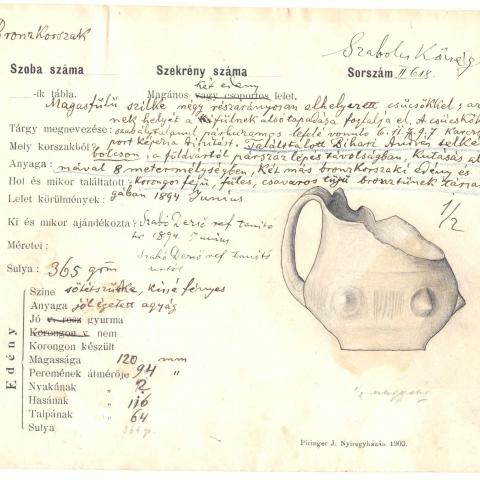 Bronzkorszak
Szabolcs Község
Szoba száma
Szekrény száma
Sorszám II 618.
két edény
-ik tábla. Magános vagy csoportos lelet.
Magasfülű szilke négy részarányosan elhelyezett csücsökkel,
nek helyét a fülnek alsó tapadása foglalja el. A csücskök
Tárgy megnevezése: szabálytalanul párhuzamos lefelé vonuló 6. 11. 7. 9. 7
Mely korszakból? port képezve díszítést. Találtatott Bihari András telke
bolcson, a földvártól párszáz lépés távolságban, Kutásás al
Anyaga: mával 8 méter mélységben, Két más bronzkorszaki edény és
Hol és mikor találtatott: Korongos fejű, füles, csavaros tűjű bronztűnek társa
Lelet körülmények: gában 1894 Junius
1/2
Ki és mikor ajándékozta: Szabó Dezső ref tanító
úr 1894 Junius
Méretei: Szabó Dezső ref tanító
Sulya: 365 grm
Edény
Szine sötétszürke, kissé fényes
Anyaga jól égetett agyag
Jó v. rosz gyurma
Korongon v. nem
Korongon készült
Magassága 120 mm
Peremének átmérője 94 "
Nyakának " ?
Hasának " 116
Talpának " 64
Sulya
1/2 nagyság
Piringer J. Nyiregyházán 1903.